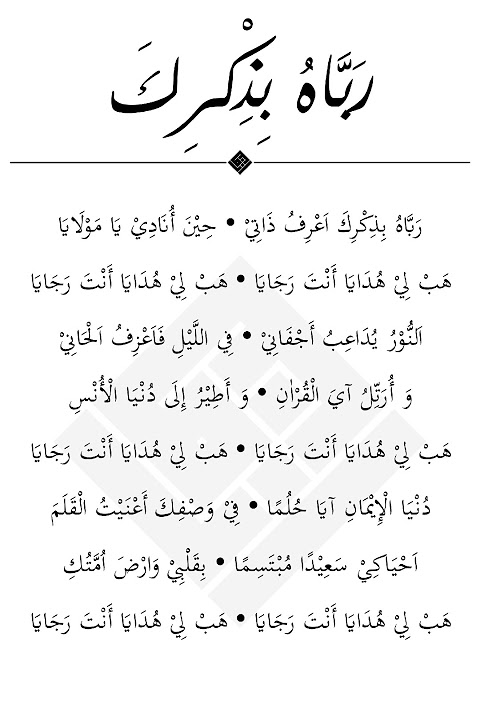 رَبَّاهُ بِذِكْرِكَ
رَبَّاهُ بِذِكْرِكَ اَعْرِفُ ذَاتِيْ • حِيْنَ أُنَادِيْ يَا مَوْلَايَا
هَبْ لِيْ هُدَايَا أَنْتَ رَجَايَا • هَبْ لِيْ هُدَايَا أَنْتَ رَجَايَا
اَلنُّوْرُ يُدَاعِبُ أَجْفَانِيْ • فِي اللَّيْلِ فَاَعْزِفُ اَلْحَانِيْ
وَ أُرَتِّلُ آيَ الْقُرْاٰنِ • وَ أَطِيْرُ إِلَى دُنْيَا الْأُنْسِ
هَبْ لِيْ هُدَايَا أَنْتَ رَجَايَا • هَبْ لِيْ هُدَايَا أَنْتَ رَجَايَا
دُنْيَا الْإِيْمَانِ آيَا حُلُمًا • فِيْ وَصْفِكَ أَعْنَيْتُ الْقَلَمَ
اَحْيَاكِيْ سَعِيْدًا مُبْتَسِمًا • بِقَلْبِيْ وَارْضَ اُمَّتُكِ
هَبْ لِيْ هُدَايَا أَنْتَ رَجَايَا • هَبْ لِيْ هُدَايَا أَنْتَ رَجَايَا